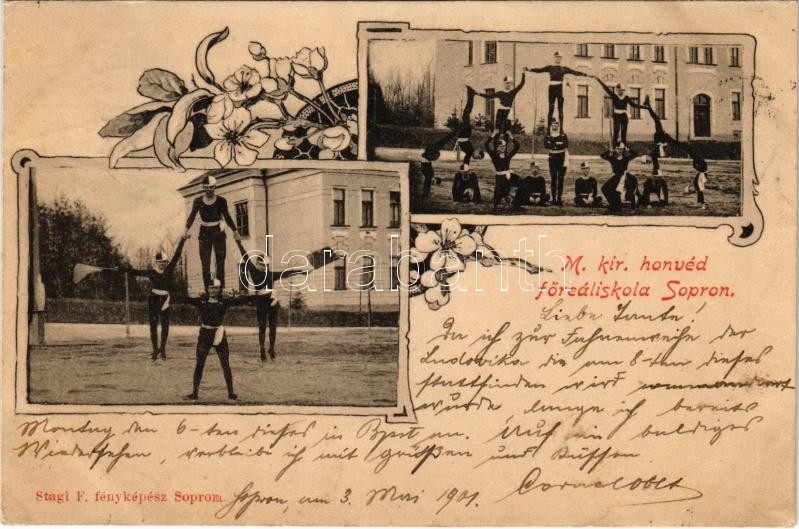 M. kir. honvéd
főreáliskola Sopron.
Liebe Tante!
Da ich zur Fahnenweihe der
Ludovika die am 8-ten dieses
stattfinden wird commandiert
wurde lange ich bereits
Montag den 6-ten dieses in Bpest an. Auf ein baldiges
Wiedersehen, verbleibe ich mit Grüßen und Küssen
Stagl F. fényképész Sopron.
Sopron, am 3. Mai 1901.
darabanth.com